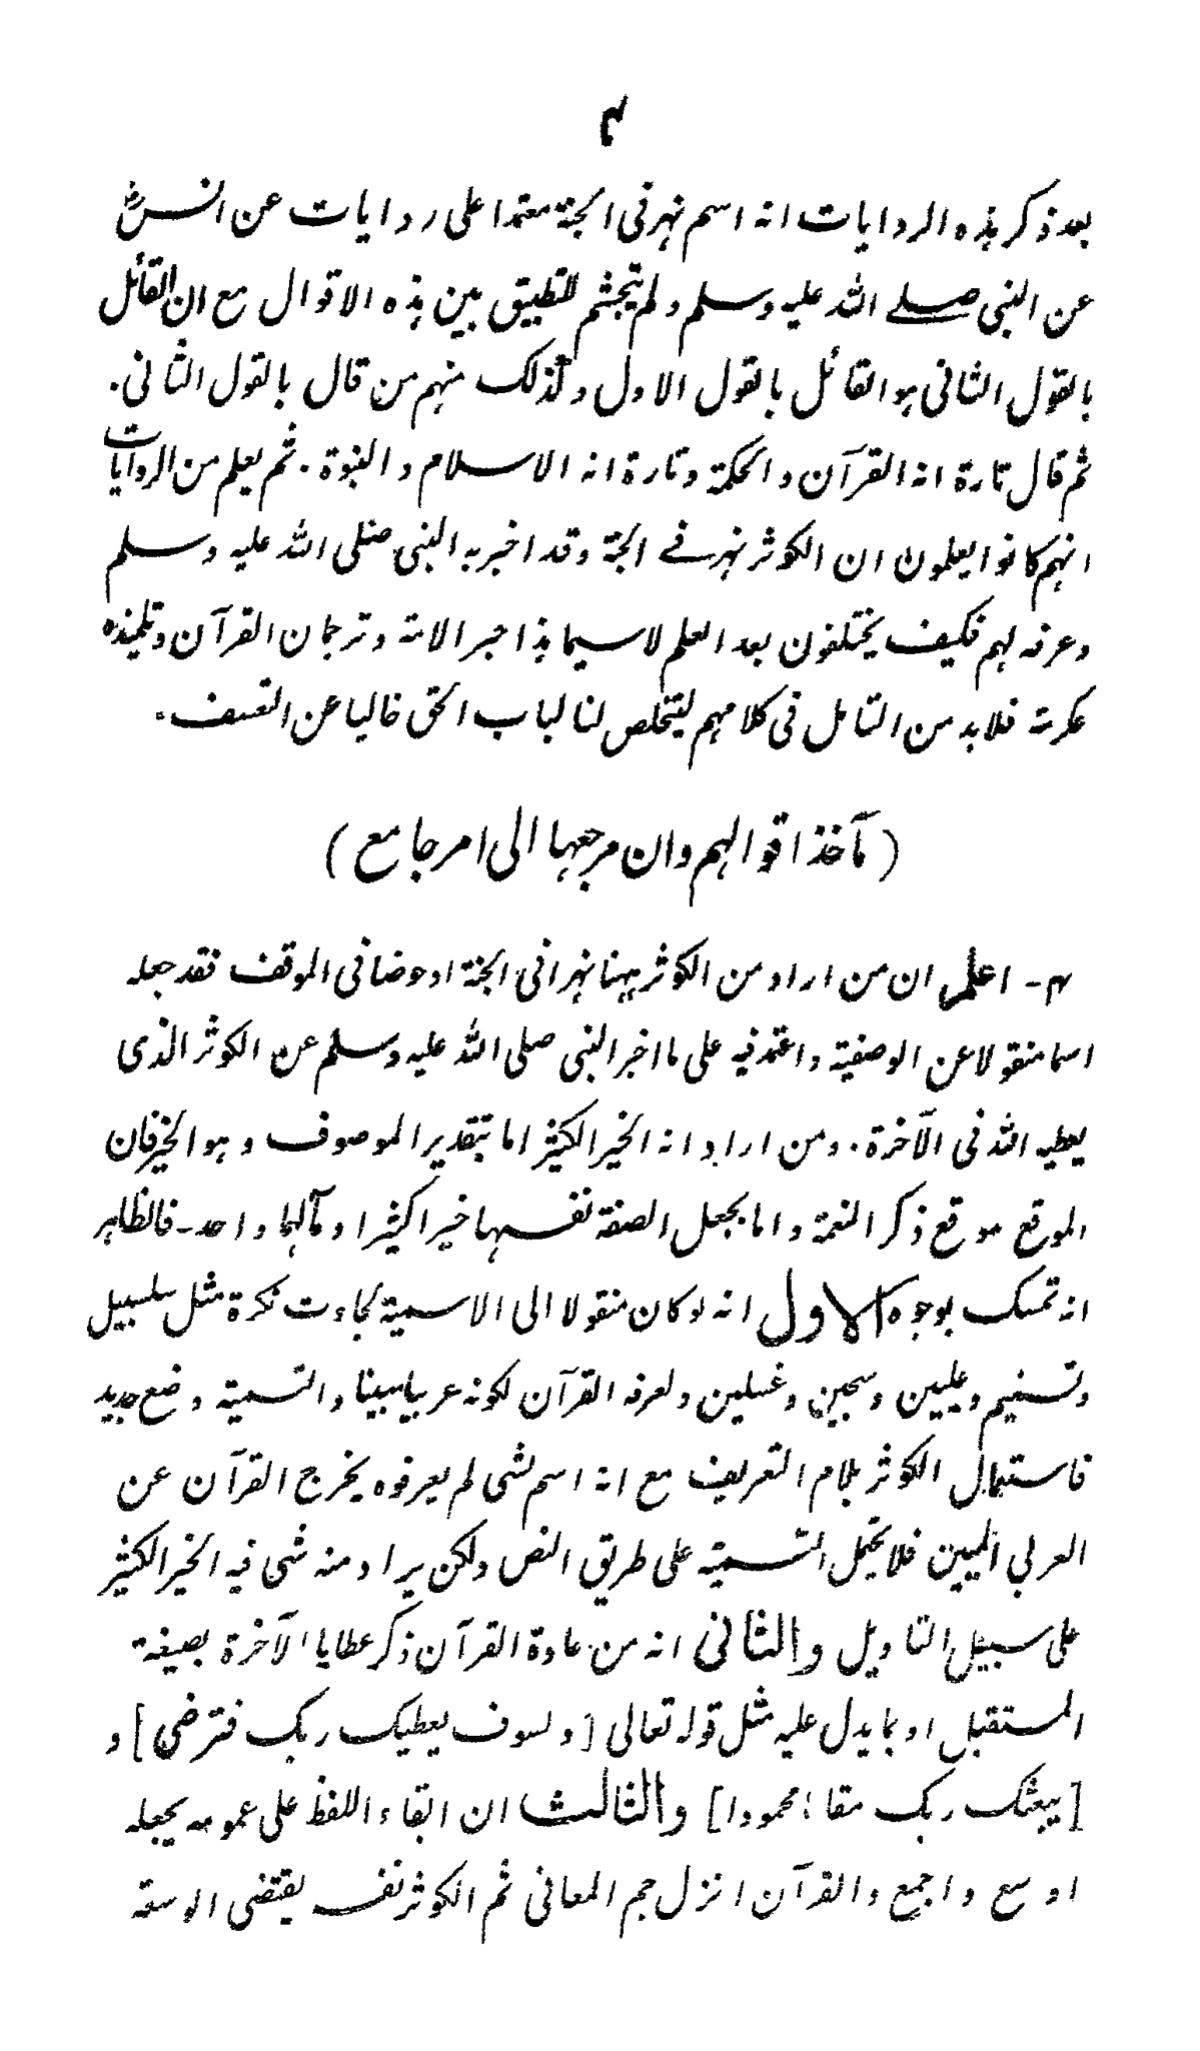 ۴
بعد ذكر هذه الروايات انه اسم نهر فى الجنة معتمدا على روايات عن انس رض
عن النبى صلے الله عليه وسلم ولم يتجشم للتطبيق بين هذه الاقوال مع ان القائل
بالقول الثانى هو القائل بالقول الاول وكذلك منهم من قال بالقول الثانى.
ثم قال تارة انه القرآن والحكمة وتارة انه الاسلام والنبوة. ثم يعلم من الروايات
انهم كانوا يعلمون ان الكوثر نهر فے الجنة وقد اخبر به النبى صلى الله عليه وسلم
وعرفه لهم فكيف يختلفون بعد العلم لاسيما هذا حبر الامة وترجمان القرآن وتلميذه
عكرمة فلابد من التامل فى كلامهم ليتخلص لنا لباب الحق خاليا عن التعسف.
(مآخذ اقوالهم وان مرجعها الى امر جامع)
۴- اعلم ان من اراد من الكوثر ههنا نهرا فى الجنة او حوضا فى الموقف فقد جعله
اسما منقولا عن الوصفية واعتمد فيه على ما اخبر النبى صلى الله عليه وسلم عن الكوثر الذى
يعطيه الله فى الآخرة. ومن اراد انه الخير الكثير اما بتقدير الموصوف وهو الخير فان
الموقع موقع ذكر النعمة واما بجعل الصفة نفسها خيرا كثيرا ومآلهما واحد۔ فالظاهر
انه تمسك بوجوه الاول انه لو كان منقولا الى الاسمية لجاءت نكرة مثل سلسبيل
وتسنيم وعليين وسجين وغسلين ولعرفه القرآن لكونه عربيا مبينا والتسمية وضع جديد
فاستعمال الكوثر بلام التعريف مع انه اسم لشى لم يعرفوه يخرج القرآن عن
العربي المبين فلا يحتمل التسمية على طريق النص ولكن يراد منه شى فيه الخير الكثير
على سبيل التاويل والثانى انه من عادة القرآن ذكر عطايا الآخرة بصيغة
المستقبل او بما يدل عليه مثل قوله تعالى [ولسوف يعطيك ربك فترضى] و
[يبعثك ربك مقاما محمودا] والثالث ان ابقاء اللفظ على عمومه يجعله
اوسع واجمع والقرآن انزل جم المعانى ثم الكوثر نفسه يقتضى الوسعة